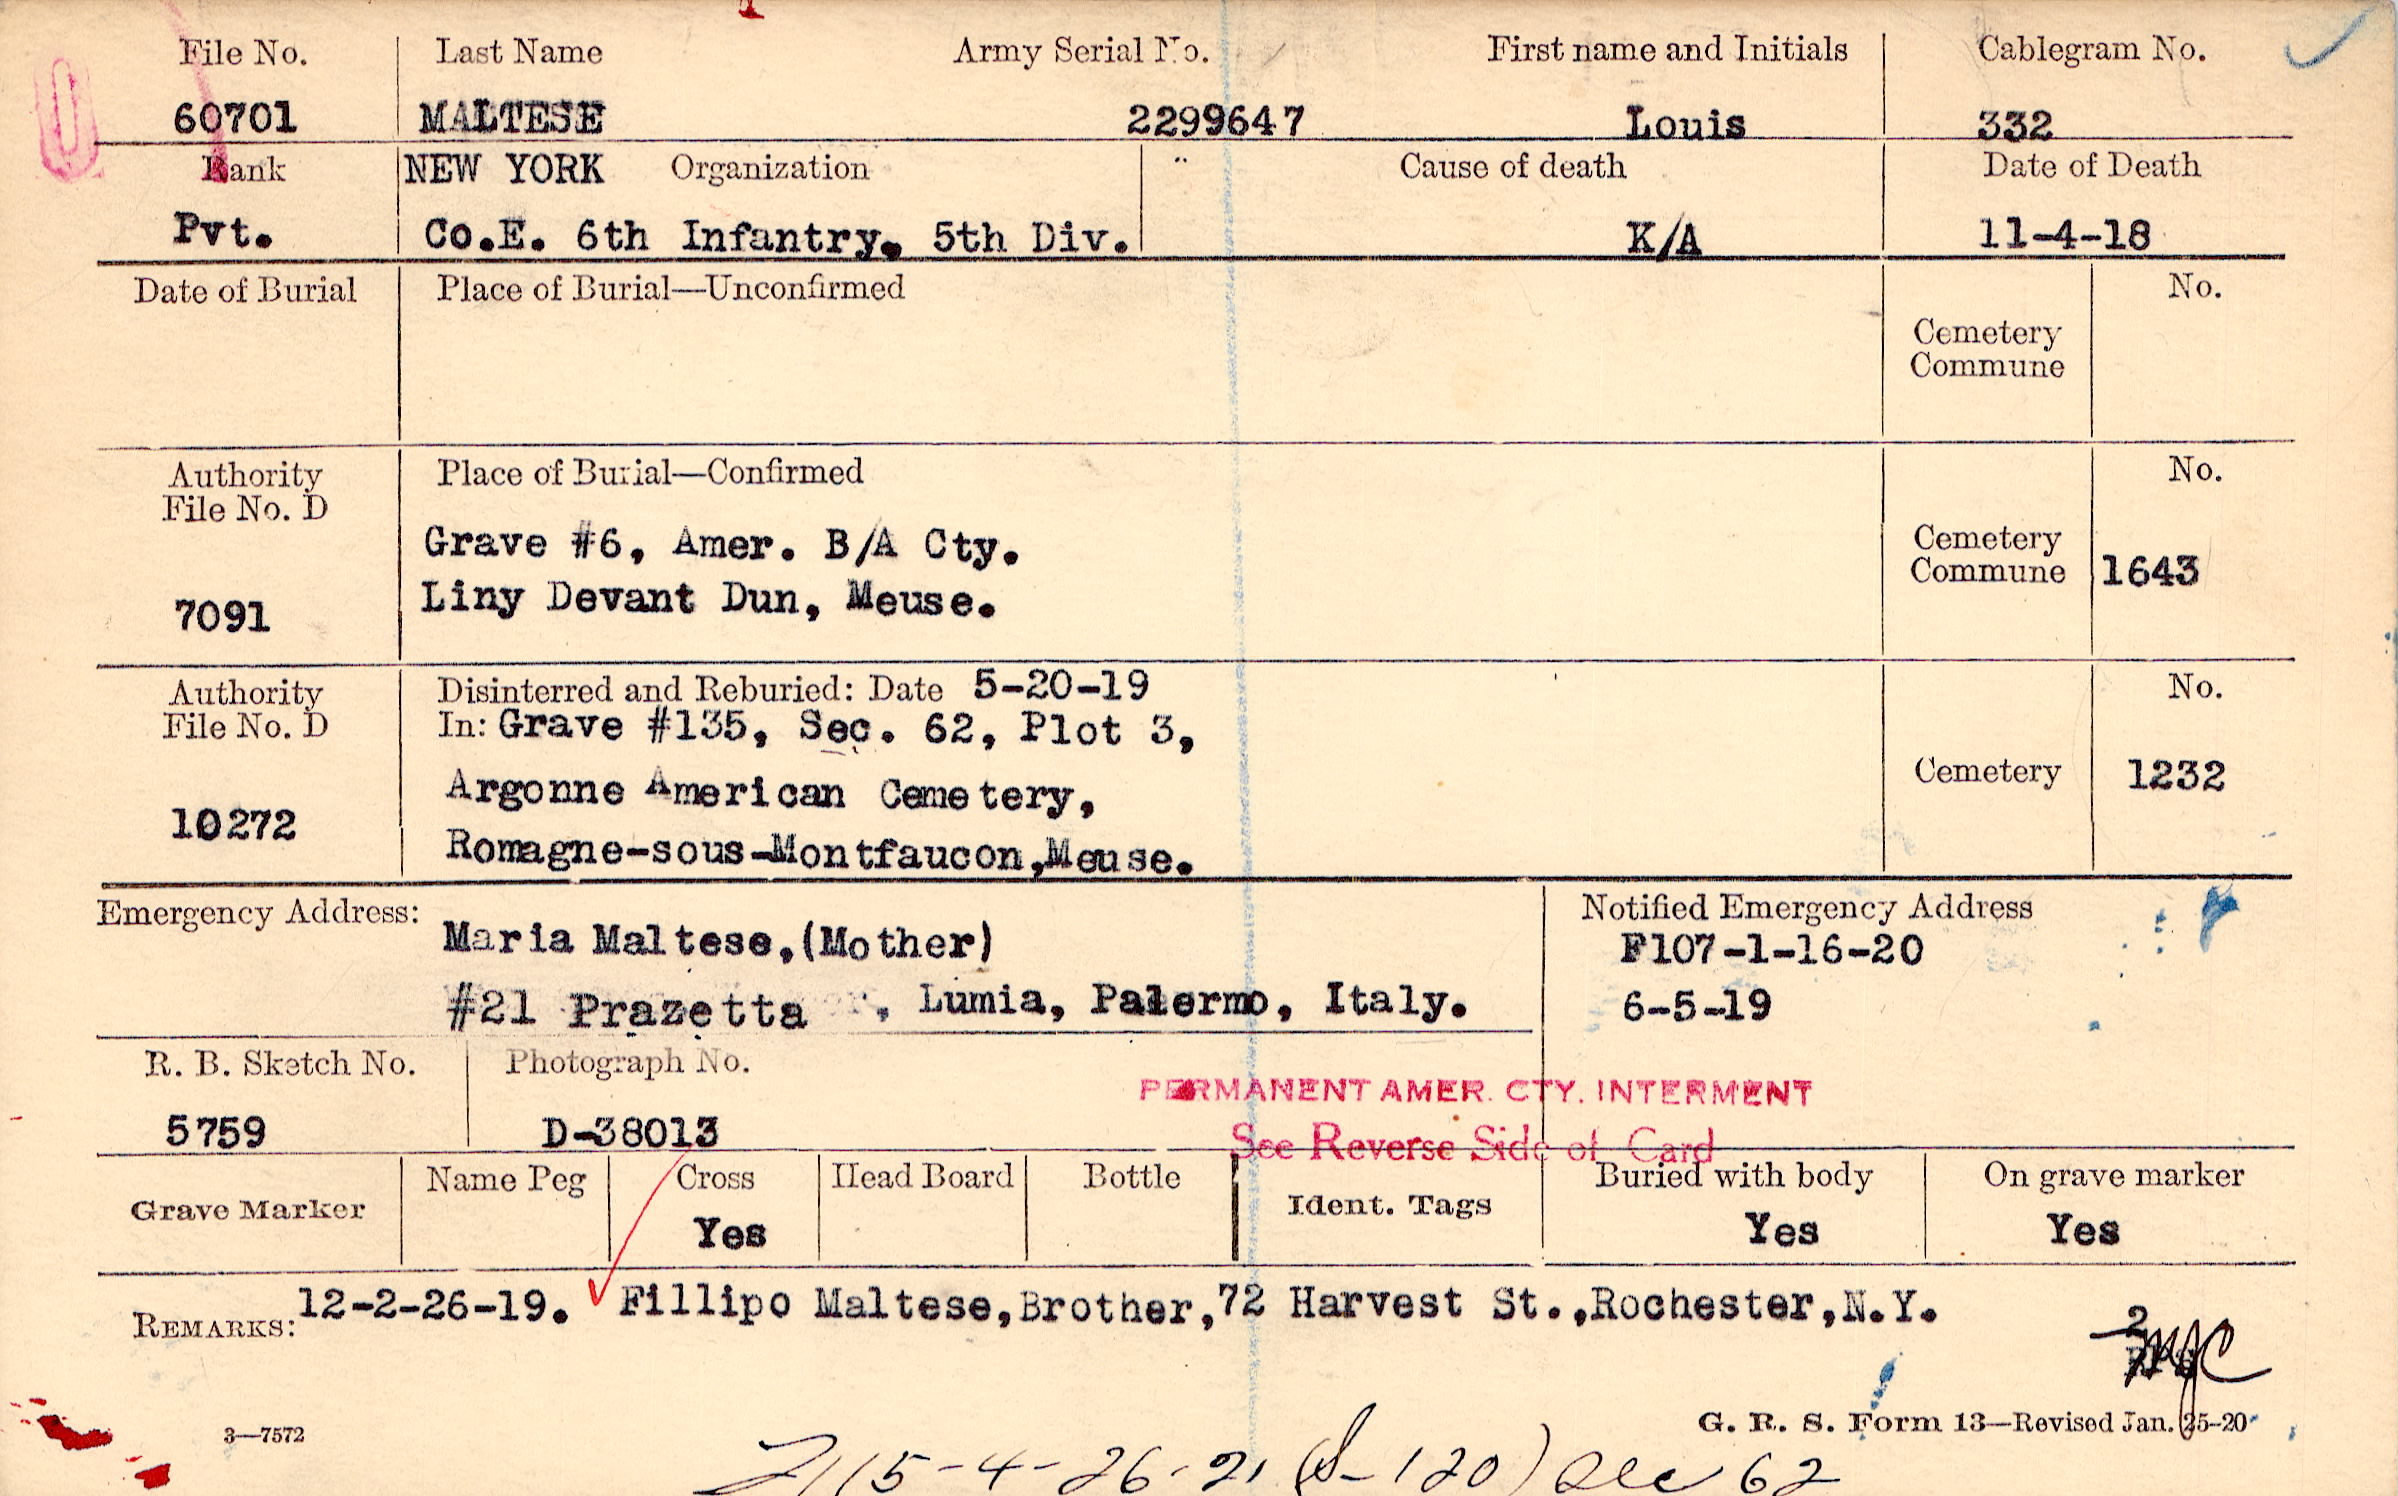 File No. Last Name Army Serial No. First name and Initials Cablegram No.
60701 MALTESE 2299647 Louis 332
Rank NEW YORK Organization Cause of death Date of Death
Pvt. Co.E. 6th Infantry. 5th Div. K/A 11-4-18
Date of Burial Place of Burial—Unconfirmed No.
Cemetery
Commune
Authority Place of Burial—Confirmed No.
File No. D
Grave #6, Amer. B/A Cty. Cemetery
Commune 1643
7091 Liny Devant Dun, Meuse.
Authority Disinterred and Reburied: Date 5-20-19 No.
File No. D In: Grave #135, Sec. 62, Plot 3,
Argonne American Cemetery, Cemetery 1232
10272
Romagne-sous-Montfaucon,Meuse.
Emergency Address: Notified Emergency Address
Maria Maltese,(Mother) F107-1-16-20
#21 Prazetta , Lumia, Palermo, Italy. 6-5-19
R. B. Sketch No. Photograph No.
PERMANENT AMER. CTY. INTERMENT
5759 D-38013
See Reverse Side of Card
Grave Marker Name Peg Cross Head Board Bottle Ident. Tags Buried with body On grave marker
Yes Yes Yes
REMARKS: 12-2-26-19. Fillipo Maltese,Brother,72 Harvest St.,Rochester,N.Y.
2
3—7572 G. R. S. Form 13—Revised Jan. 25-20
5-4-26-21 (S-120) Sec 62